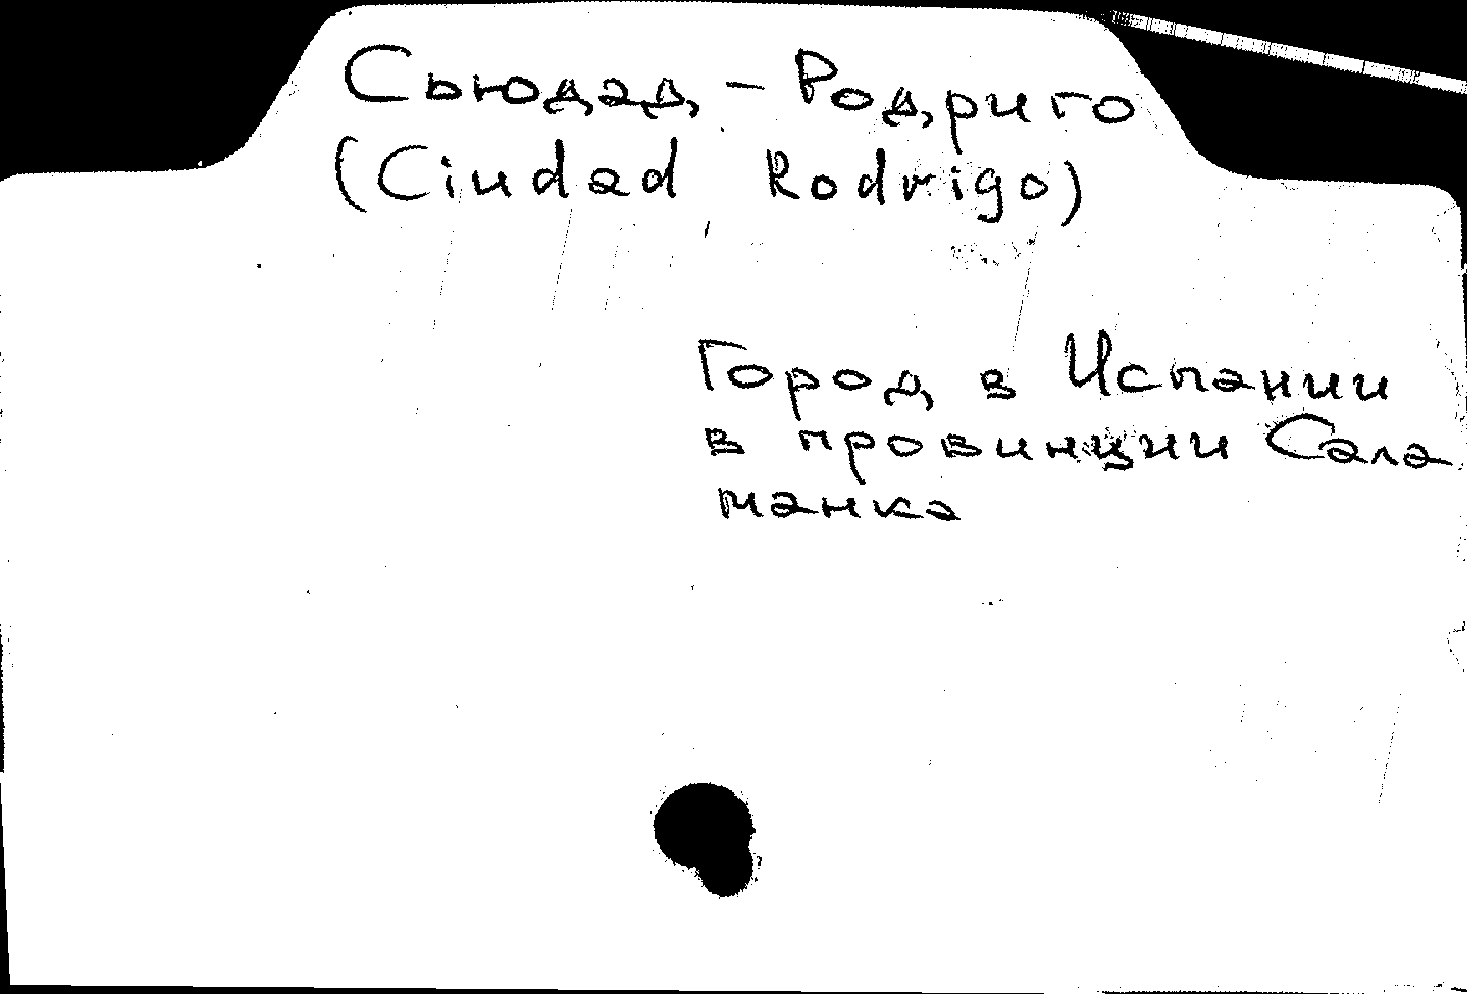 Сьюдад-Родриго
(Ciudad Rodrigo)
Город в Испании
в провинции Сала
манка